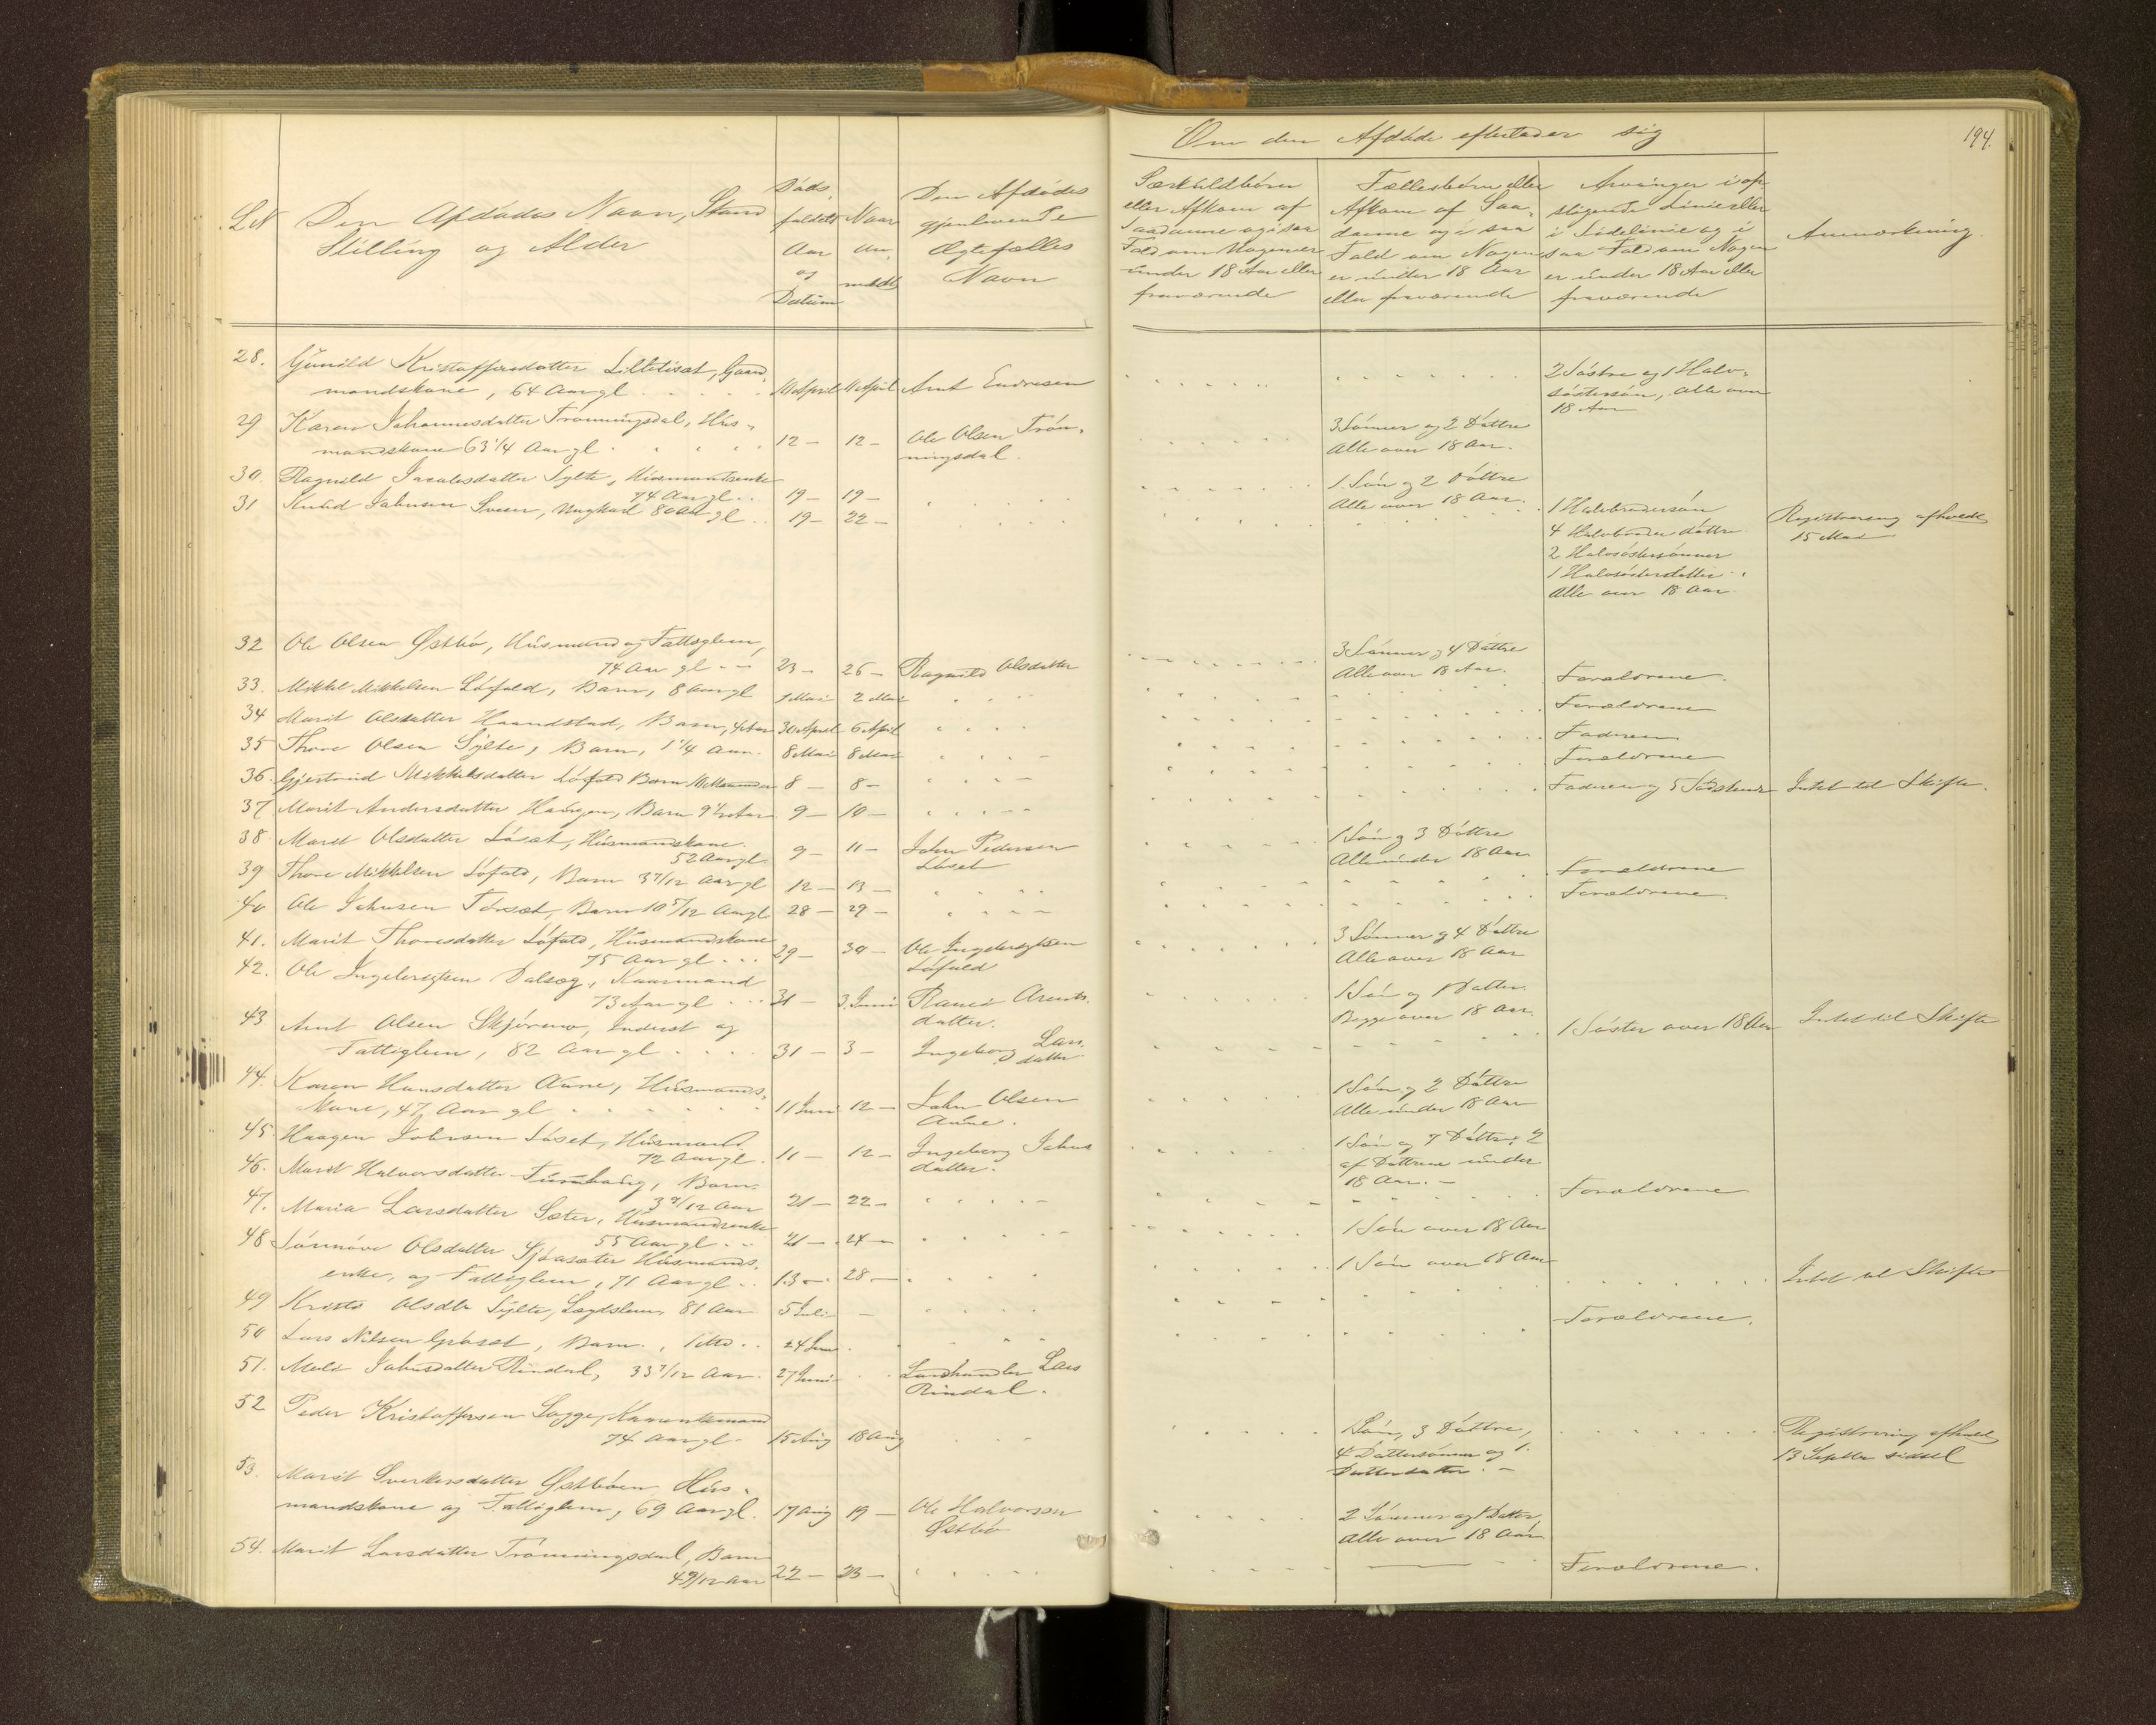 194.
Om den Afdøde efterlader sig
L.N
Den Afdødes Navn, Stand
Stilling og Alder
Døds
faldets
Aar
og
Datum
Naar
an
meldt
Den Afdødes
gjenlevende
Ægtefælles
Navn
Særkuldbørn
eller Afkom af
Saadanne og i saa
Fald om Nogen er
under 18 Aar eller
fraværende
Fællesbørn eller
Afkom af Saa-
danne og i saa
Fald om Nogen
er under 18 Aar
eller fraværende
Arvinger i op-
stigende Linie eller
i Sidelinie og i
saa Fald om Nogen
er under 18 Aar eller
fraværende
Anmærkning.
28. Gunild Kristoffersdatter Gaard-
mandskone, 64 Aar gl 11 April 11 April Arnt Endresen
2 Søstre og 1 Halv-
søstersøn, alle over
18 Aar
29 Karen Johannesdatter Trønningsdal, Hus-
mandskone 63 1/4 Aar gl 12 – 12 – Ole Olsen Trøn-
ningsdal.
3 Sønner og 2 Døttre
Alle over 18 Aar.
30. Ragnild Jacobsdatter Sylte, Husmandsenke
74 Aar gl 19 – 19 –
1 Søn og 2 Døttre
Alle over 18 Aar.
31 Knud Johnsen Ungkarl 80 Aar gl 19 – 22 –
1 Halvbrodersøn
4 Halvbroderdøttre
2 Halvsøstersønner
1 Halvsøsterdatter
Alle over 18 Aar
Registrering afholdt
15 Mai
32 Ole Olsen Østbø, Husmand og Fattiglem,
74 Aar gl 23 – 26 – Ragnild Olsdatter
3 Sønner og 4 Døttre
Alle over 18 Aar.
33. Mikkel Mikkelsen Løfald, Barn, 8 Aar gl 1 Mai 2 Mai
Forældrene.
34 Marit Olsdatter Haandstad, Barn, 4 Aar 30 April 6 April
Forældrene
35 Thore Olsen Sylte, Barn, 1 1/4 Aar. 8 Mai 8 Mai
Faderen
36. Gjertrud Mikkelsdatter Løfald Barn 11 Maaneder 8 – 8 –
Forældrene
37 Marit Andersdatter Haugen, Barn 9 1/2 Aar 9 – 10 –
Faderen og 5 Sødskende Intet til Skifte.
38 Marit Olsdatter Løset, Husmandskone.
52 Aar gl. 9 – 11 – John Pedersen
Løset
1 Søn og 3 Døttre
Alle under 18 Aar
39 Thore Mikkelsen Løfald, Barn 3 7/12 Aar gl 12 – 13 –
Forældrene
40 Ole Johnsen Barn 10 5/12 Aar gl 28 – 29 –
Forældrene.
41. Marit Thoresdatter Løfald, Husmandskone
75 Aar gl 29 – 30 – Ole Ingebrigtsen
Løfald
3 Sønner og 4 Døttre
Alle over 18 Aar
42. Ole Ingebrigtsen Dalseg, Kaarmand
73 Aar gl 31 – 3. Juni Arents-
datter.
1 Søn og 1 Datter
Begge over 18 Aar.
43 Arnt Olsen Skjørmo, Inderst og
Fattiglem, 82 Aar gl 31 – 3 – Ingeborg Lars-
datter
1 Søster over 18 Aar Intet til Skifte
44. Karen Hansdatter Aune, Husmands-
kone, 47 Aar gl 11 Juni 12 – John Olsen
Aune.
1 Søn og 2 Døttre
Alle under 18 Aar
45 Haagen Johnsen Løset, Husmand
72 Aar gl. 11 – 12 – Ingeborg Johns
datter.
1 Søn og 7 Døttre, 2
af Døttrene under
18 Aar. –
46. Marit Halvorsdatter Barn
3 9/12 Aar 21 – 22 –
Forældrene
47. Maria Larsdatter Sæter, Husmandsenke
55 Aar gl 21 – 24 –
1 Søn over 18 Aar
48 Olsdatter Husmands-
enke, og Fattiglem, 71 Aar gl 13 – 28 –
1 Søn over 18 Aar
49 Olsdtr Sylte, Lægdslem, 81 Aar 5 Juli –
Intet til Skifte
50 Lars Nilsen Barn, 1 Md. 24 Juni
Forældrene.
51. Johnsdatter Rindal, 33 7/12 Aar. 27 Juni Landhandler Lars
Rindal.
52 Peder Kristoffersen
74 Aar gl. 15 Aug 18 Aug
1 Søn, 3 Døttre,
4 Dattersønner og 1
Datterdatter. –
Registrering afholdt
13 Septbr sidstl
53. Marit Sverkersdatter Østbøen Hus-
mandskone og Fattiglem, 69 Aar gl. 17 Aug 19 – Ole Halvorsen
Østbø
2 Sønner og 1 Datter,
Alle over 18 Aar
54. Marit Larsdatter Trønningsdal, Barn
4 9/12 Aar 22 – 23 –
Forældrene.